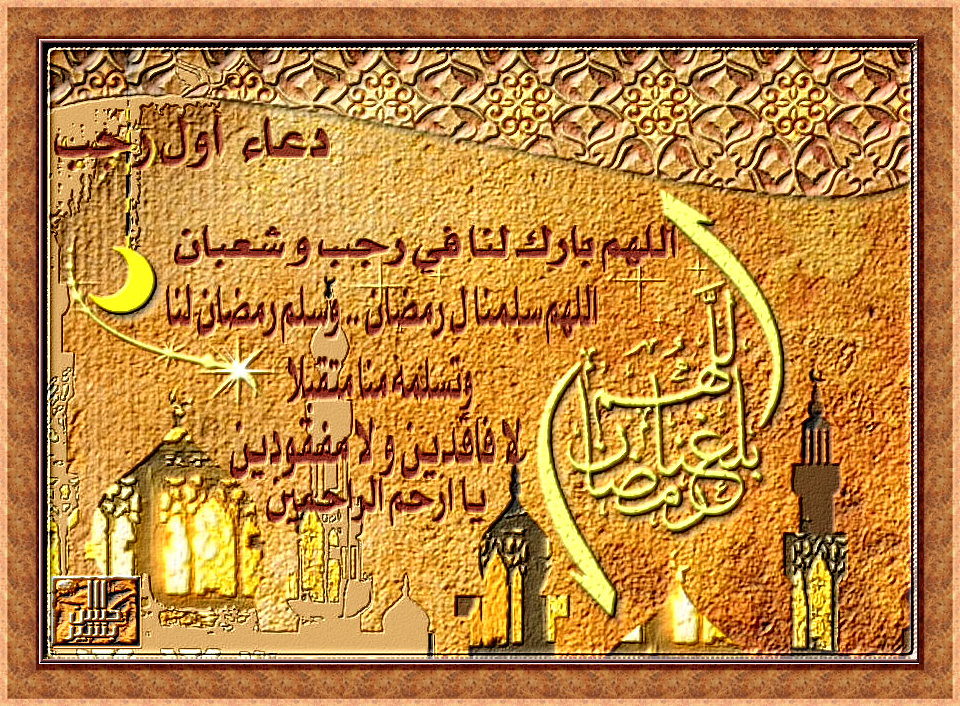 دعاء أول رجب
اللهم بارك لنا في رجب و شعبان
اللهم سلمنا ل رمضان .. وسلم رمضان لنا
وتسلمة منا متقبلا
لا فاقدين و لا مفقودين
يا ارحم الراحمين
اللهم
بلغنا
رمضان